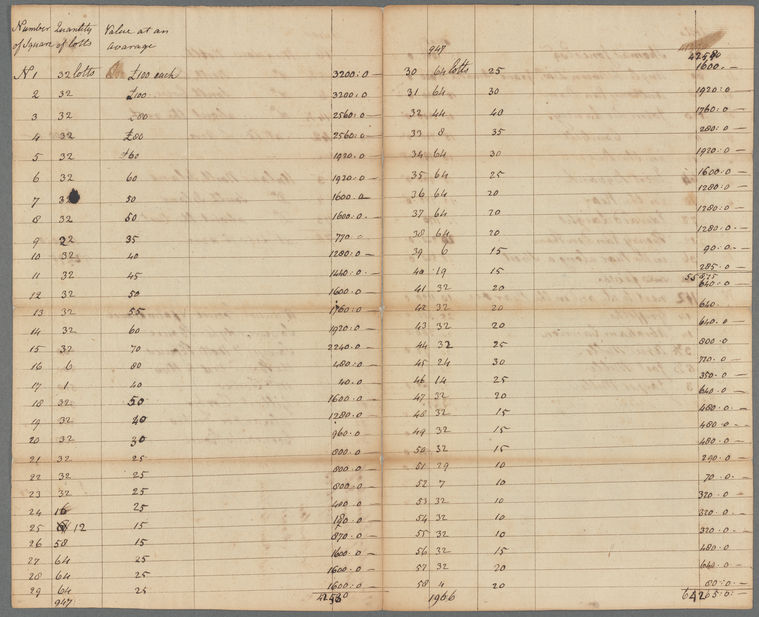 Number of Square Quantity of lotts Value at an avarage
N 1 32 lotts £100 each 3200:0
2 32 £100 3200:0
3 32 £80 2560:0
4 32 £80 2560:0
5 32 £60 1920:0
6 32 60 1920:0
7 32 50 1600:0
8 32 50 1600:0
9 22 35 770:0
10 32 40 1280:0
11 32 45 1440:0
12 32 50 1600:0
13 32 55 1760:0
14 32 60 1920:0
15 32 70 2240:0
16 6 80 480:0
17 1 40 40:0
18 32 50 1600:0
19 32 40 1280:0
20 32 30 960:0
21 32 25 800:0
22 32 25 800:0
23 32 25 800:0
24 16 25 400:0
25 12 15 180:0
26 58 15 870:0
27 64 25 1600:0
28 64 25 1600:0
29 64 25 1600:0
947
947
30 64 lotts 25 1600
31 64 30 1920:0
32 44 40 1760:0
33 8 35 280:0
34 64 30 1920:0
35 64 25 1600:0
36 64 20 1280:0
37 64 20 1280:0
38 64 20 1280:0
39 6 15 90:0
40 19 15 285:0
41 32 20 640:0
42 32 20 640
43 32 20 640:0
44 32 25 800:0
45 24 30 720:0
46 14 25 350:0
47 32 20 640:0
48 32 15 480:0
49 32 15 480:0
50 32 15 480:0
51 29 10 290:0
52 7 10 70:0
53 32 10 320:0
54 32 10 320:0
55 32 10 320:0
56 32 15 480:0
57 32 20 640:0
58 4 20 80:0
1966 64265:0